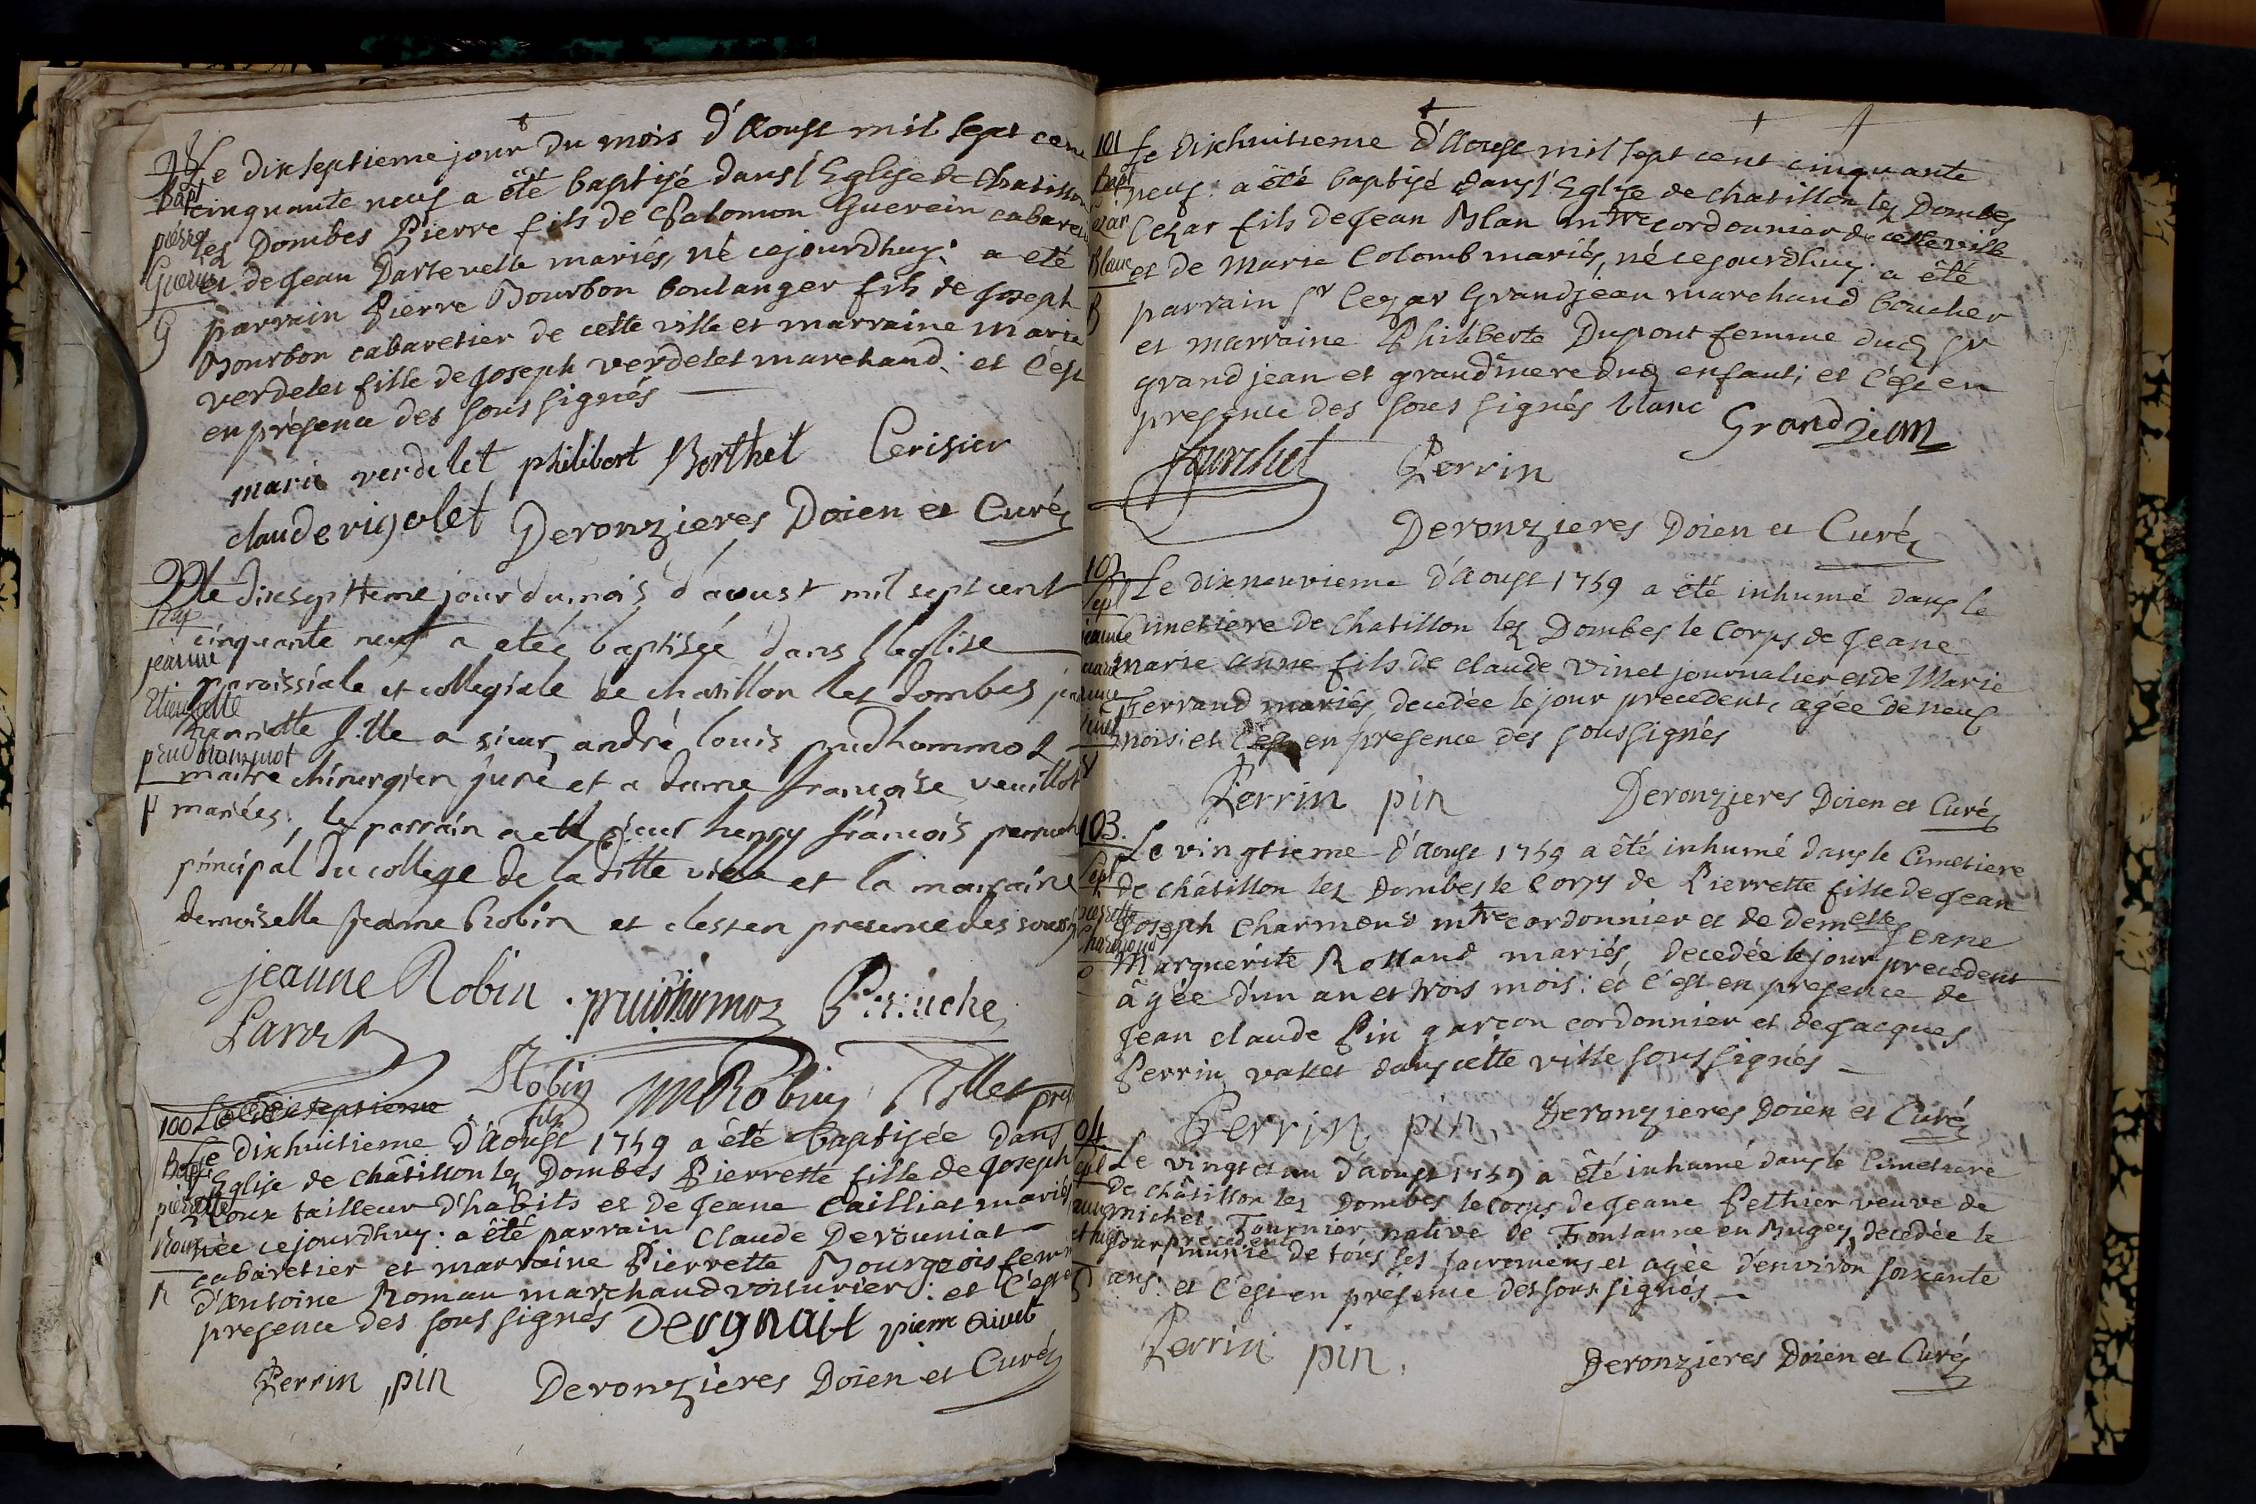 98
Bapt
pierre
Guerin
G
Le dixseptieme jour du mois d'Aoust mil sept cent
cinquante neuf a été baptisé dans l'Eglise de Chatillon
lez Dombes Pierre fils de Palomon Guerin cabaretier
et de Jean Dartevelle mariés, né cejourdhuy: a eté
parrain Pierre Bourbon boulanger fils de Joseph
Bourbon cabaretier de cette ville et marraine Marie
verdelet fille de Joseph verdelet marchand: et c'est
en présence des sous signés
marie verdelet philibert Berthet Cerisier
claude rigolet Deronzieres Doien et Curé
Bap
jeanne
le dixsepttieme jour du mois d'aoust mil sept cent
cinquante neuf a etéé baptisée dans l'église
paroissiale et collegiale de chatillon les dombes
henriette fille a sieur andré louis prudhommoz
maitre chirurgien juré et a dame francoise veuillot
mariées; le parrain a eté sieur henry francois perruche
principal du college de la ditte ville et la maraine
demoiselle Jeanne Robin et c'est en presence des soussig
jeanne Robin prudhomoz Peruche
Robin fils mRobin
100 Le dixseptieme
Bapt
pierrette
Roux
R
Le dixhuitieme d'Aoust 1759 a été baptisée dans
l'Eglise de châtillon lez Dombes Pierrette fille de Joseph
Roux tailleur d'habits et de Jeane Cailliat mariés
née cejourdhuy: a été parrain Claude Derouniat
cabaretier et marraine Pierrette Bourgeois femme
d'Antoine Roman marchand voiturier: et c'est en
presence des sous signés Dergnait pierre Rivet
Perrin pin Deronzières Doien et Curé
101
Bapt
Cezar
Blanc
B
Le dixhuitieme d'Aoust mil sept cent cinquante
neuf: a été baptisé dans l'Eglise de chatillon lez Dombes
Cezar fils de Jean Blan mtre cordonnier de cette ville
et de Marie Colomb mariés, né cejourdhuy: a été
parrain sr Cezar Grandjean marchand boucher
et marraine Philiberte Dupont femme dud sr
grand jean et grandmere dud enfant; et c'est en
presence des sous signés blanc Grandjean
fourchet Perrin
Deronzieres Doien et Curé
102
Sepl
jeanne
marie
anne
vinet
V
Le dixneuvieme d'Aoust 1759 a été inhumé dans le
Cimetiere de chatillon lez Dombes le Corps de Jeane
marie anne fils de claude vinet journalier et de Marie
Ferrand mariés, decedée le jour precedent, agée de neuf
mois: et c'est en presence des sous signés
Perrin pin Deronzieres Doien et Curé
103.
Sepl
pierrette
Charmond
Le vingtieme d'Aoust 1759 a été inhumé dans le Cimetiere
de châtillon lez Dombes le Corps de Pierrette fille de Jean
Joseph Charmond mtre cordonnier et de demelle Jeane
Marguérite Rolland mariés, decedée le jour precedent
âgée d'un an et trois mois: et c'est en presence de
Jean claude Pin garçon cordonnier et de Jacques
Perrin valet dans cette ville sous signés
Perrin pin, Deronzieres Doien et Curé
04
Le vingt et un d'aoust 1759 a été inhumé dans le Cimetiere
de châtillon lez Dombes le Corps de Jeane Pethier veuve de
michel Tournier, native de Fontanne en Bugey, decedée le
jour precedent munie de tous ses sacremens et agée d'environ soixante
ans: et c'est en présence des sous signés
Perrin pin. Deronzieres Doien et Curé